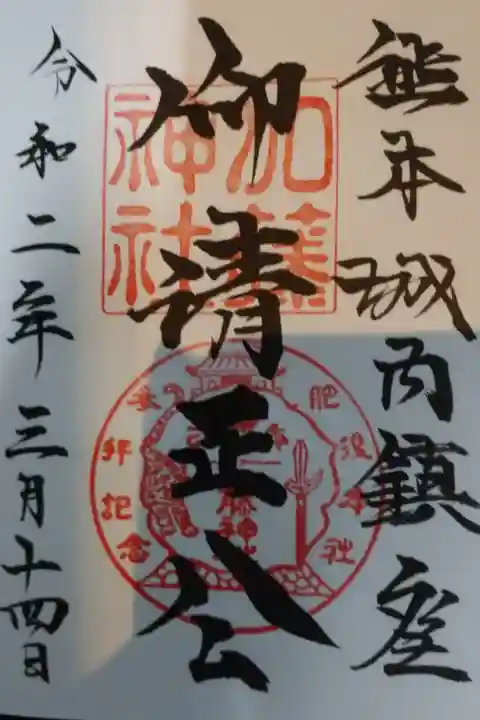 熊本城内鎮座
仰清正公
令和二年三月十四日
加藤
神社
肥後本社
参拝記念